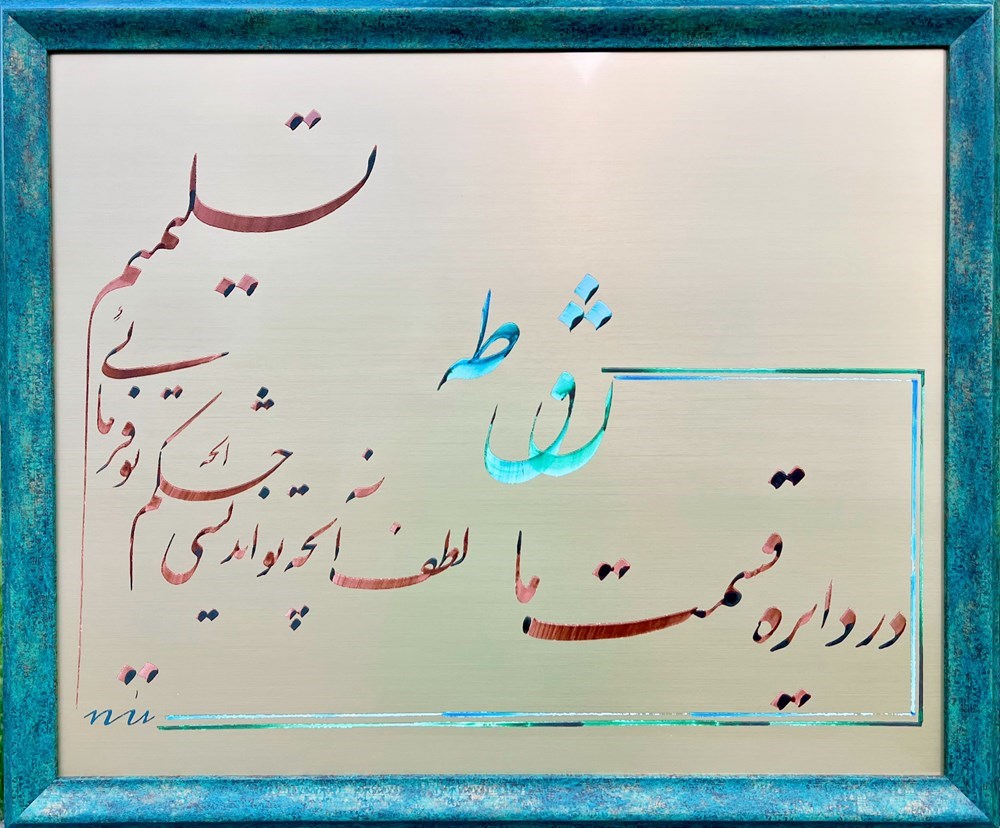 در دایره قسمت ما
نقطه
تسلیمیم
لطف آنچه تو اندیشی
حکم آنچه تو فرمائی